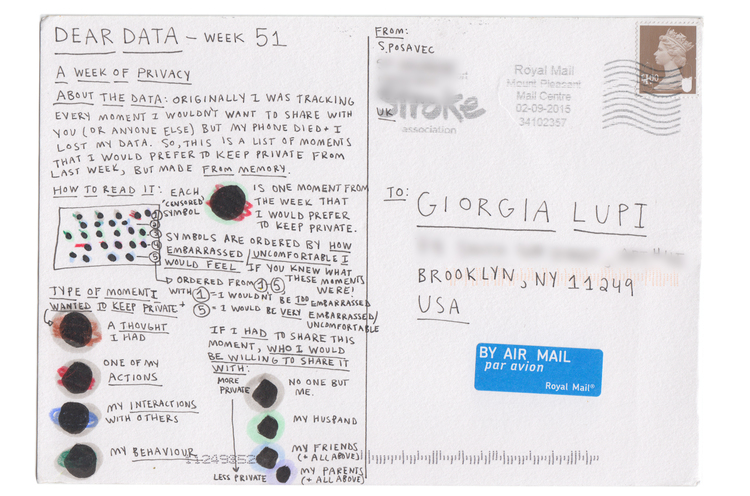 DEAR DATA - WEEK 51
A WEEK OF PRIVACY
ABOUT THE DATA: ORIGINALLY I WAS TRACKING
EVERY MOMENT I WOULDN'T WANT TO SHARE WITH
YOU (OR ANYONE ELSE) BUT MY PHONE DIED + I
LOST MY DATA. SO, THIS IS A LIST OF MOMENTS
THAT I WOULD PREFER TO KEEP PRIVATE FROM
LAST WEEK, BUT MADE FROM MEMORY.
HOW TO READ IT:
EACH
'CENSORED'
SYMBOL
IS ONE MOMENT FROM
THE WEEK THAT
I WOULD PREFER
TO KEEP PRIVATE.
1
2
3
4
5
SYMBOLS ARE ORDERED BY HOW
EMBARRASSED/UNCOMFORTABLE I
WOULD FEEL IF YOU KNEW WHAT
THESE MOMENTS
WERE!
ORDERED FROM 1-5,
WITH 1 = I WOULDN'T BE TOO EMBARRASSED
+ 5 = I WOULD BE VERY EMBARRASSED/
UNCOMFORTABLE
TYPE OF MOMENT I
WANTED TO KEEP PRIVATE
A THOUGHT
I HAD
ONE OF MY
ACTIONS
MY INTERACTIONS
WITH OTHERS
MY BEHAVIOUR
IF I HAD TO SHARE THIS
MOMENT, WHO I WOULD
BE WILLING TO SHARE IT
WITH:
MORE
PRIVATE
NO ONE BUT
ME.
MY HUSBAND
MY FRIENDS
(+ ALL ABOVE)
MY PARENTS
(+ ALL ABOVE)
LESS PRIVATE
FROM:
S. POSAVEC
UK
Stroke
association
Royal Mail
Mount Pleasant
Mail Centre
02-09-2015
34102357
TO:
GIORGIA LUPI
BROOKLYN, NY 11249
USA
BY AIR MAIL
par avion
Royal Mail®